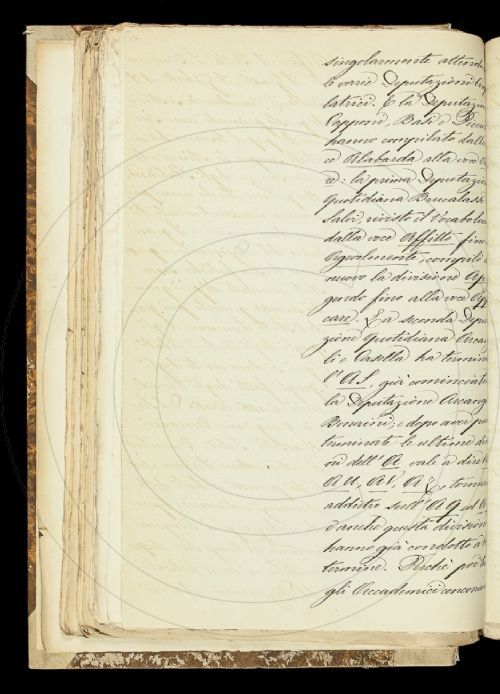 singolarmente attend
le varie Deputazioni
latrici. E la Deputazio
Capponi, Basi e
hanno compilato dall
ce Alabarda alla voce
re: la prima Deputazio
quotidiana Brucalassi
Salvi, rivisto il Vocabola
dalla voce Affitto fino
Agevolmente; compilò
nuovo la divisione Ap
gendo fino alla voce App
care. La seconda Depu
zione quotidiana Arcan
li e Casella ha termin
l'AS, già cominciata
la Deputazione Arcang
e dopo aver
terminate le ultime di
ni dell'A vale a dire
AU, AV, AZ,
addietro sull'AQ ed
e anche questa division
hanno già condotto a
termine. Perchè poi
gli Accademici